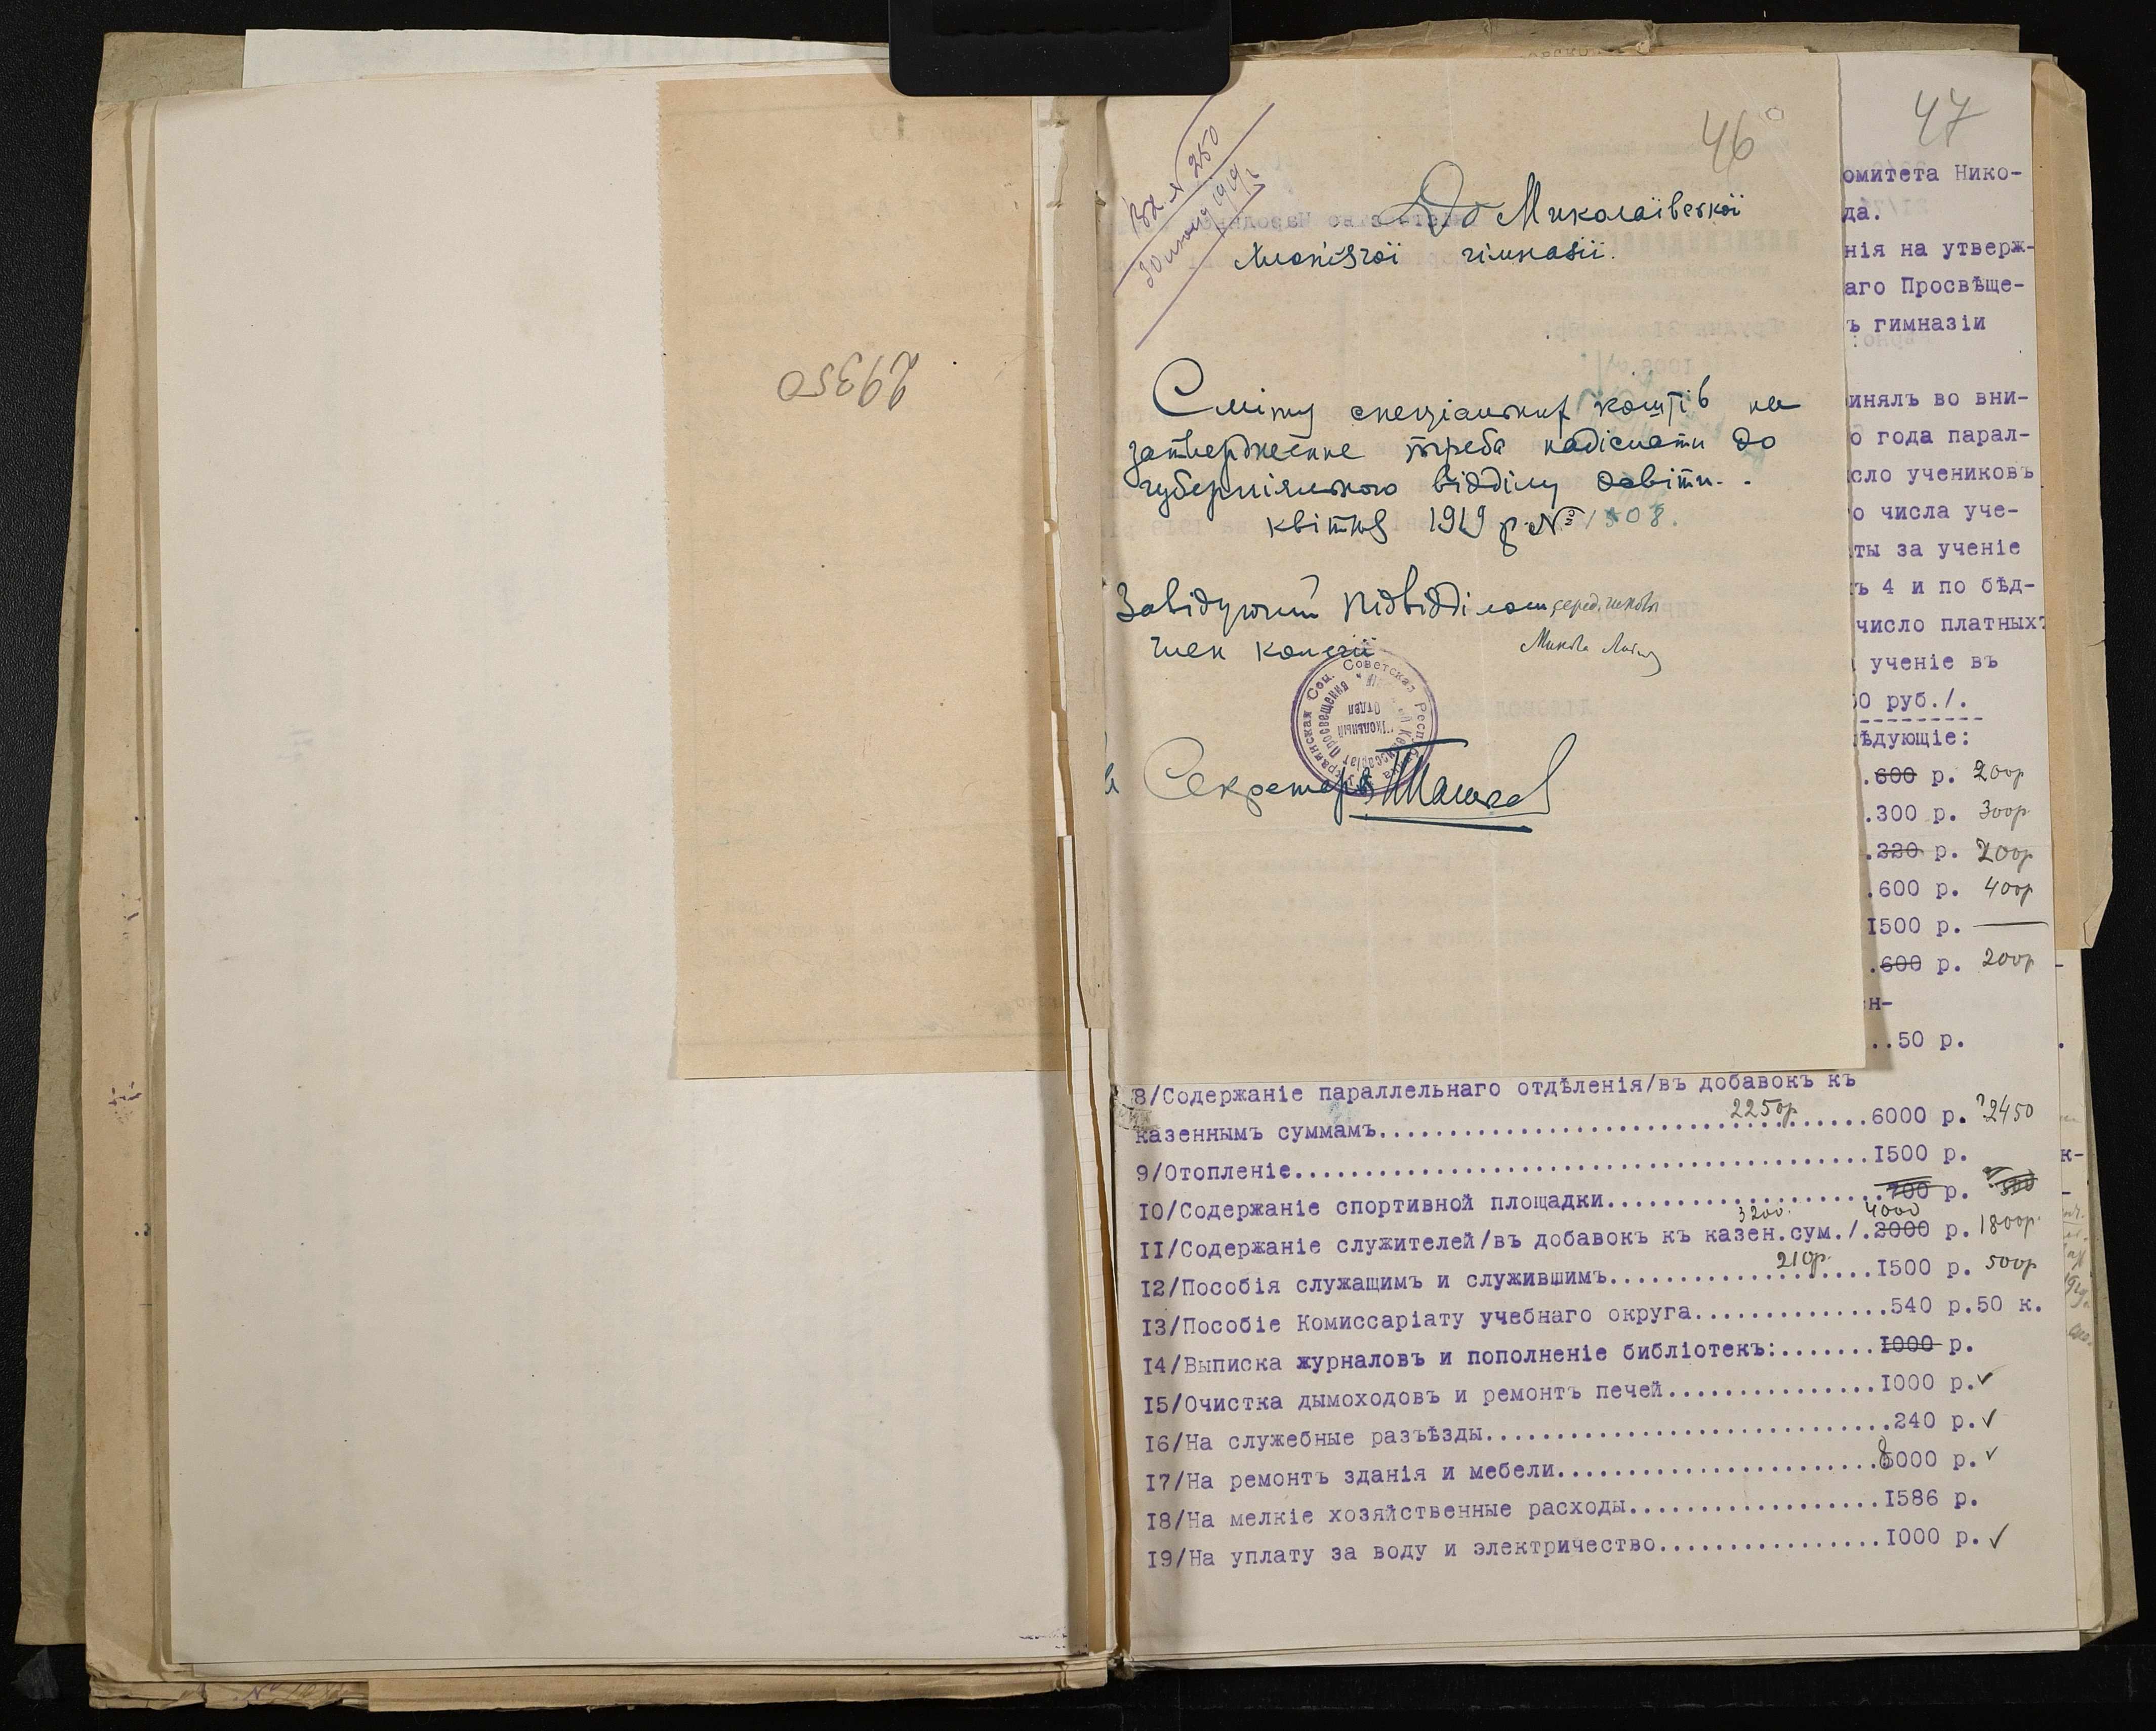 29350
46
Вх. № 250
30 июня 1919 г.
До Миколаївської
гімназії.
Сміту спеціальних коштів на
затвердженне треба надіслати до
губерніяльного відділу освіти.
квітня 1919 р. № 1508.
Завідуючий підвідділом
член колегії
Украинская Соц. Советская Республика
Секретарь
47
омитета Нико-
да.
нія на утверж-
аго Просвѣще-
ъ гимназіи
инялъ во вни-
о года парал-
сло учениковъ
о числа уче-
ты за ученіе
ъ 4 и по бѣд-
число платныхъ
ученіе въ
0 руб./.
ѣдующіе:
.600 р. 200р
.300 р. 300р
.220 р. 200р
.600 р. 400р
I500 р. —
.600 р. 200р
н-
..50 р.
8/Содержаніе параллельнаго отдѣленія/въ добавокъ къ
казеннымъ суммамъ. 2250р. 6000 р. ?2450
9/Отопленіе.......I500 р.
I0/Содержаніе спортивной площадки.......700 р.
II/Содержаніе служителей/въ добавокъ къ казен.сум./. 3200. 4000 2000 р. 1800р.
I2/Пособія служащимъ и служившимъ....... 210р. I500 р. 500р
I3/Пособіе Комиссаріату учебнаго округа.......540 р.50 к.
I4/Выписка журналовъ и пополненіе библіотекъ:.......I000 р.
I5/Очистка дымоходовъ и ремонтъ печей.......I000 р.✓
I6/На служебные разъѣзды.......240 р.✓
I7/На ремонтъ зданія и мебели.......8000 р.✓
I8/На мелкіе хозяйственные расходы.......I586 р.
I9/На уплату за воду и электричество.......I000 р.✓